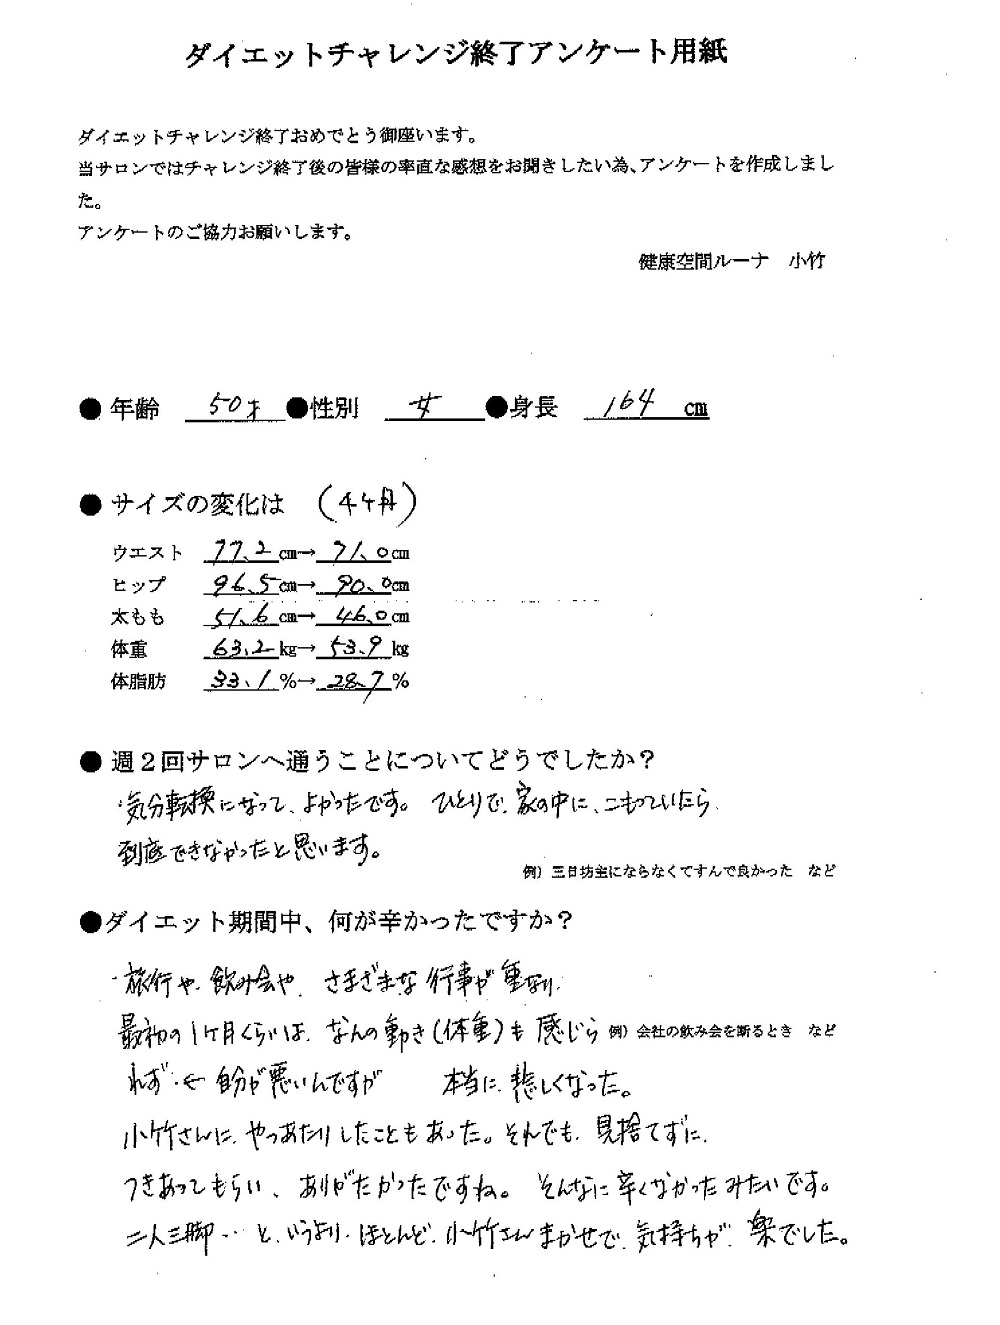 ダイエットチャレンジ終了アンケート用紙
ダイエットチャレンジ終了おめでとう御座います。
当サロンではチャレンジ終了後の皆様の率直な感想をお聞きしたい為、アンケートを作成しまし
た。
アンケートのご協力お願いします。
健康空間ルーナ 小竹
● 年齢 50才 ●性別 女 ●身長 164 cm
● サイズの変化は (4ヶ月)
ウエスト 77.2cm→ 71.0cm
ヒップ 96.5cm→ 90.0cm
太もも 51.6cm→ 46.0cm
体重 63.2kg→ 53.9kg
体脂肪 33.1%→ 28.7%
● 週２回サロンへ通うことについてどうでしたか？
・気分転換になって、よかったです。 ひとりで、家の中に、こもっていたら、
到底できなかったと思います。
例）三日坊主にならなくてすんで良かった など
●ダイエット期間中、何が辛かったですか？
・旅行や、飲み会や、さまざまな行事が重なり、
最初の1ヶ月くらいは、なんの動き(体重)も感じら 例）会社の飲み会を断るとき など
れず・← 自分が悪いんですが 本当に、悲しくなった。
小竹さんに、やつあたりしたこともあった。それでも、見捨てずに、
つきあってもらい、ありがたかったですね。 そんなに辛くなかったみたいです。
二人三脚‥と、いうより、ほとんど、小竹さんまかせで、気持ちが、楽でした。